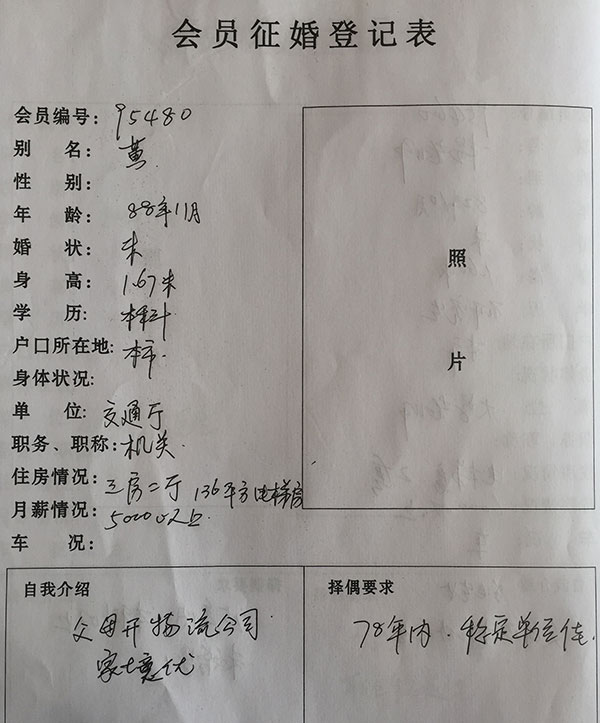 会员征婚登记表
会员编号： 95480
别 名： 黄
性 别：
年 龄： 88年11月
婚 状： 未
身 高： 1.67米
学 历： 本科
户口所在地: 本市.
身体状况:
单 位: 交通厅
职务、职称: 机关
住房情况: 三房二厅 136平方电梯房
月薪情况: 5000以上
车 况:
照
片
自我介绍
父母开物流公司
家境优
择偶要求
78年内．稳定单位佳.